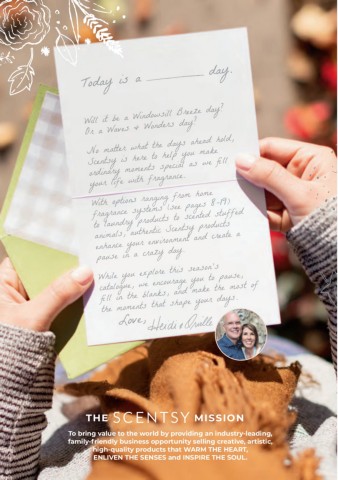 Today is a __________ day.
Will it be a Windowsill Breeze day?
Or a Waves & Wonders day?
No matter what the days ahead hold,
Scentsy is here to help you make
ordinary moments special as we fill
your life with fragrance.
With options ranging from home
fragrance systems (see pages 8-19)
to laundry products to scented stuffed
animals, authentic Scentsy products
enhance your environment and create a
pause in a crazy day.
While you explore this season's
catalogue, we encourage you to pause,
fill in the blanks, and make the most of
the moments that shape your days.
Love, Heidi & Orville
THE SCENTSY MISSION
To bring value to the world by providing an industry-leading,
family-friendly business opportunity selling creative, artistic,
high-quality products that WARM THE HEART,
ENLIVEN THE SENSES and INSPIRE THE SOUL.